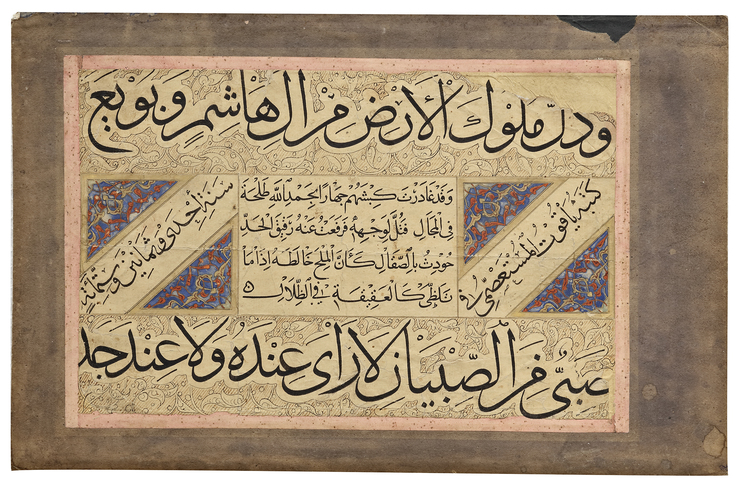 وذل ملوك الأرض من ال هاشم وبويع
كتبه ياقوت المستعصمي في
وقد غادرت كبشهم جهارا بحمد الله طلحة
في المجال فتل لوجهه فرفعت عنه رقيق الحد
حودث بالصقال كأن الملح خالطه إذا ما
تلظى كالعقيقة في الظلال
سنة أحدى وثمانين وستمائة
صبي من الصبيان لا راي عنده ولا عند جد